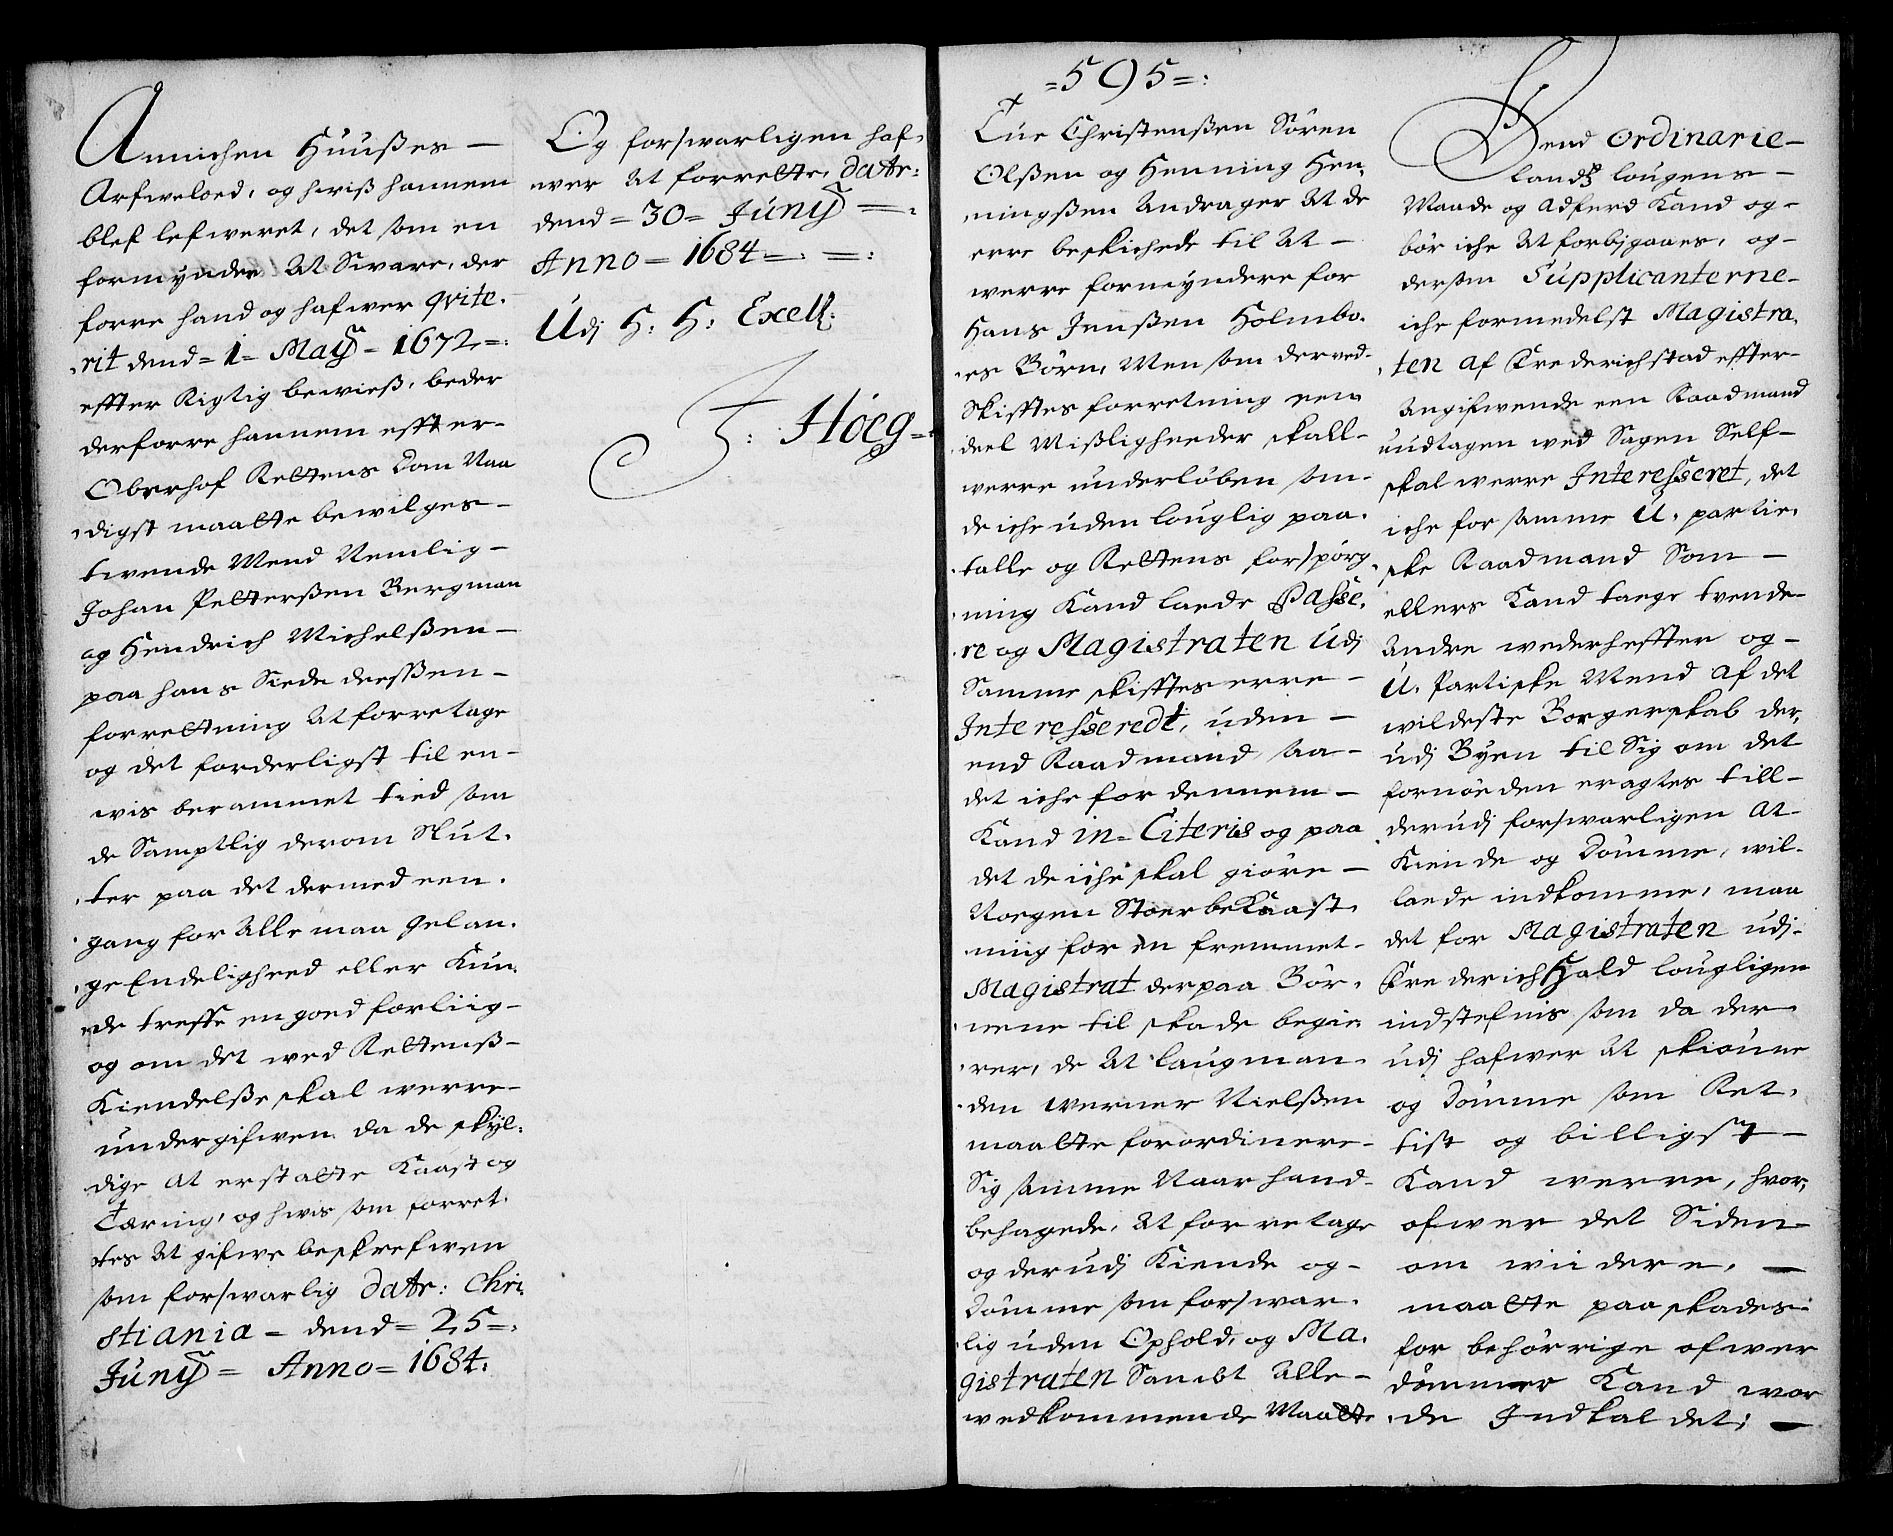 Annichen Huußes —
Arfweloed, og hwiß hannem
blef lefweret, det som en
formynder At Sware, der
forre hand og hafwer qvite-
rit dend = 1 = Maÿ = 1672 =:
effter Rigtig bewieß, beder
derforre hannem effter-
Oberhof Rettens Dom Naa
digst maatte bewilges —
twende Mend Nemlig —
Johan Petterßen Bergman
og Hendrich Michelßen —
paa hans Siede deeßen —
forrettning At forretage
og det forderligst til en-
wis berammet tied som
de Samptlig derom Slut-
ter paa det dermed een-
gang for Alle maa gelan-
ge Endeligheed eller Kun-
de treffe en goed forliig —
og om det wed Rettenß-
Kiendelße skal werre-
undergifwen da de skÿl-
dige At erstatte Kaast og
Tæring, og hwis som forret-
tes At gifwe beskrefwen
som forswarlig Datr: Chri-
stiania — dend = 25 =.
Junÿ = Anno = 1684.
Og forswarligen haf-
wer At forrette. Datr:
dend = 30 = Junÿ =
Anno = 1684 =:
Udj H: H: Excell:
J: Höeg =
= 595 =:
Tue Christenßen Sören
Olßen og Henning Hen-
ningßen Andrager At de
erre beskichede til At —
werre formyndere for
Hans Jenßen Holmbo-
es Börn, Men som derved-
Skifftes forretning een
deel Mißligheeder skall-
werre underlöben som-
de iche uden louglig paa-
talle og Rettens forspörg-
ning Kand laede Passe-
re og Magistraten Udj
Samme skifftes erre —
Interesseredt, uden —
end Raadmand saa —
det iche for dennem —
Kand in = Citeris og paa
det de iche skal giöre —
Noegen Stoer beKaast-
ning for en fremmet-
Magistrat der paa Bör-
nene til skade begie-
rer, de At laugman-
den Werner Nielßen
maatte forordinere-
Sig samme Naar hand-
behagede, At forretage
og der udj Kiende og-
Dömme som forswar-
lig uden Ophold, og Ma-
gistraten Sambt Alle —
wedkommende Maatte
Dend Ordinarie —
landß lougens —
Maade og Adferd Kand og-
bör iche At forbjgaaes, og-
dersom Supplicanterne —
iche formedelst Magistra-
ten af Frederichstad effter-
Angifwende een Raadmand
undtagen wed Sagen Self-
skal werre Interesseret, det
iche for samme U. partie-
ske Raadmand Som —
ellers Kand taege twende-
Andre wederhefftter og-
U. Partiske Mend af det
wildeste Borgerskab der-
udj Byen til Sig om det
fornöeden eragtes till-
derudj forswarligen At-
Kiende og Dömme, wil-
laede indkomme, maa
det for Magistraten udj-
FrederichHald lougligen
indstefnis som da der
udj hafwer At skiönne
og Dömme som Ret-
tist og billigst —
Kand werre, hvor-
ofwer det Siden
om wiidere, —
maatte paaskades-
for behörrige ofwer
dömmer Kand wor
de Indkaldet; —